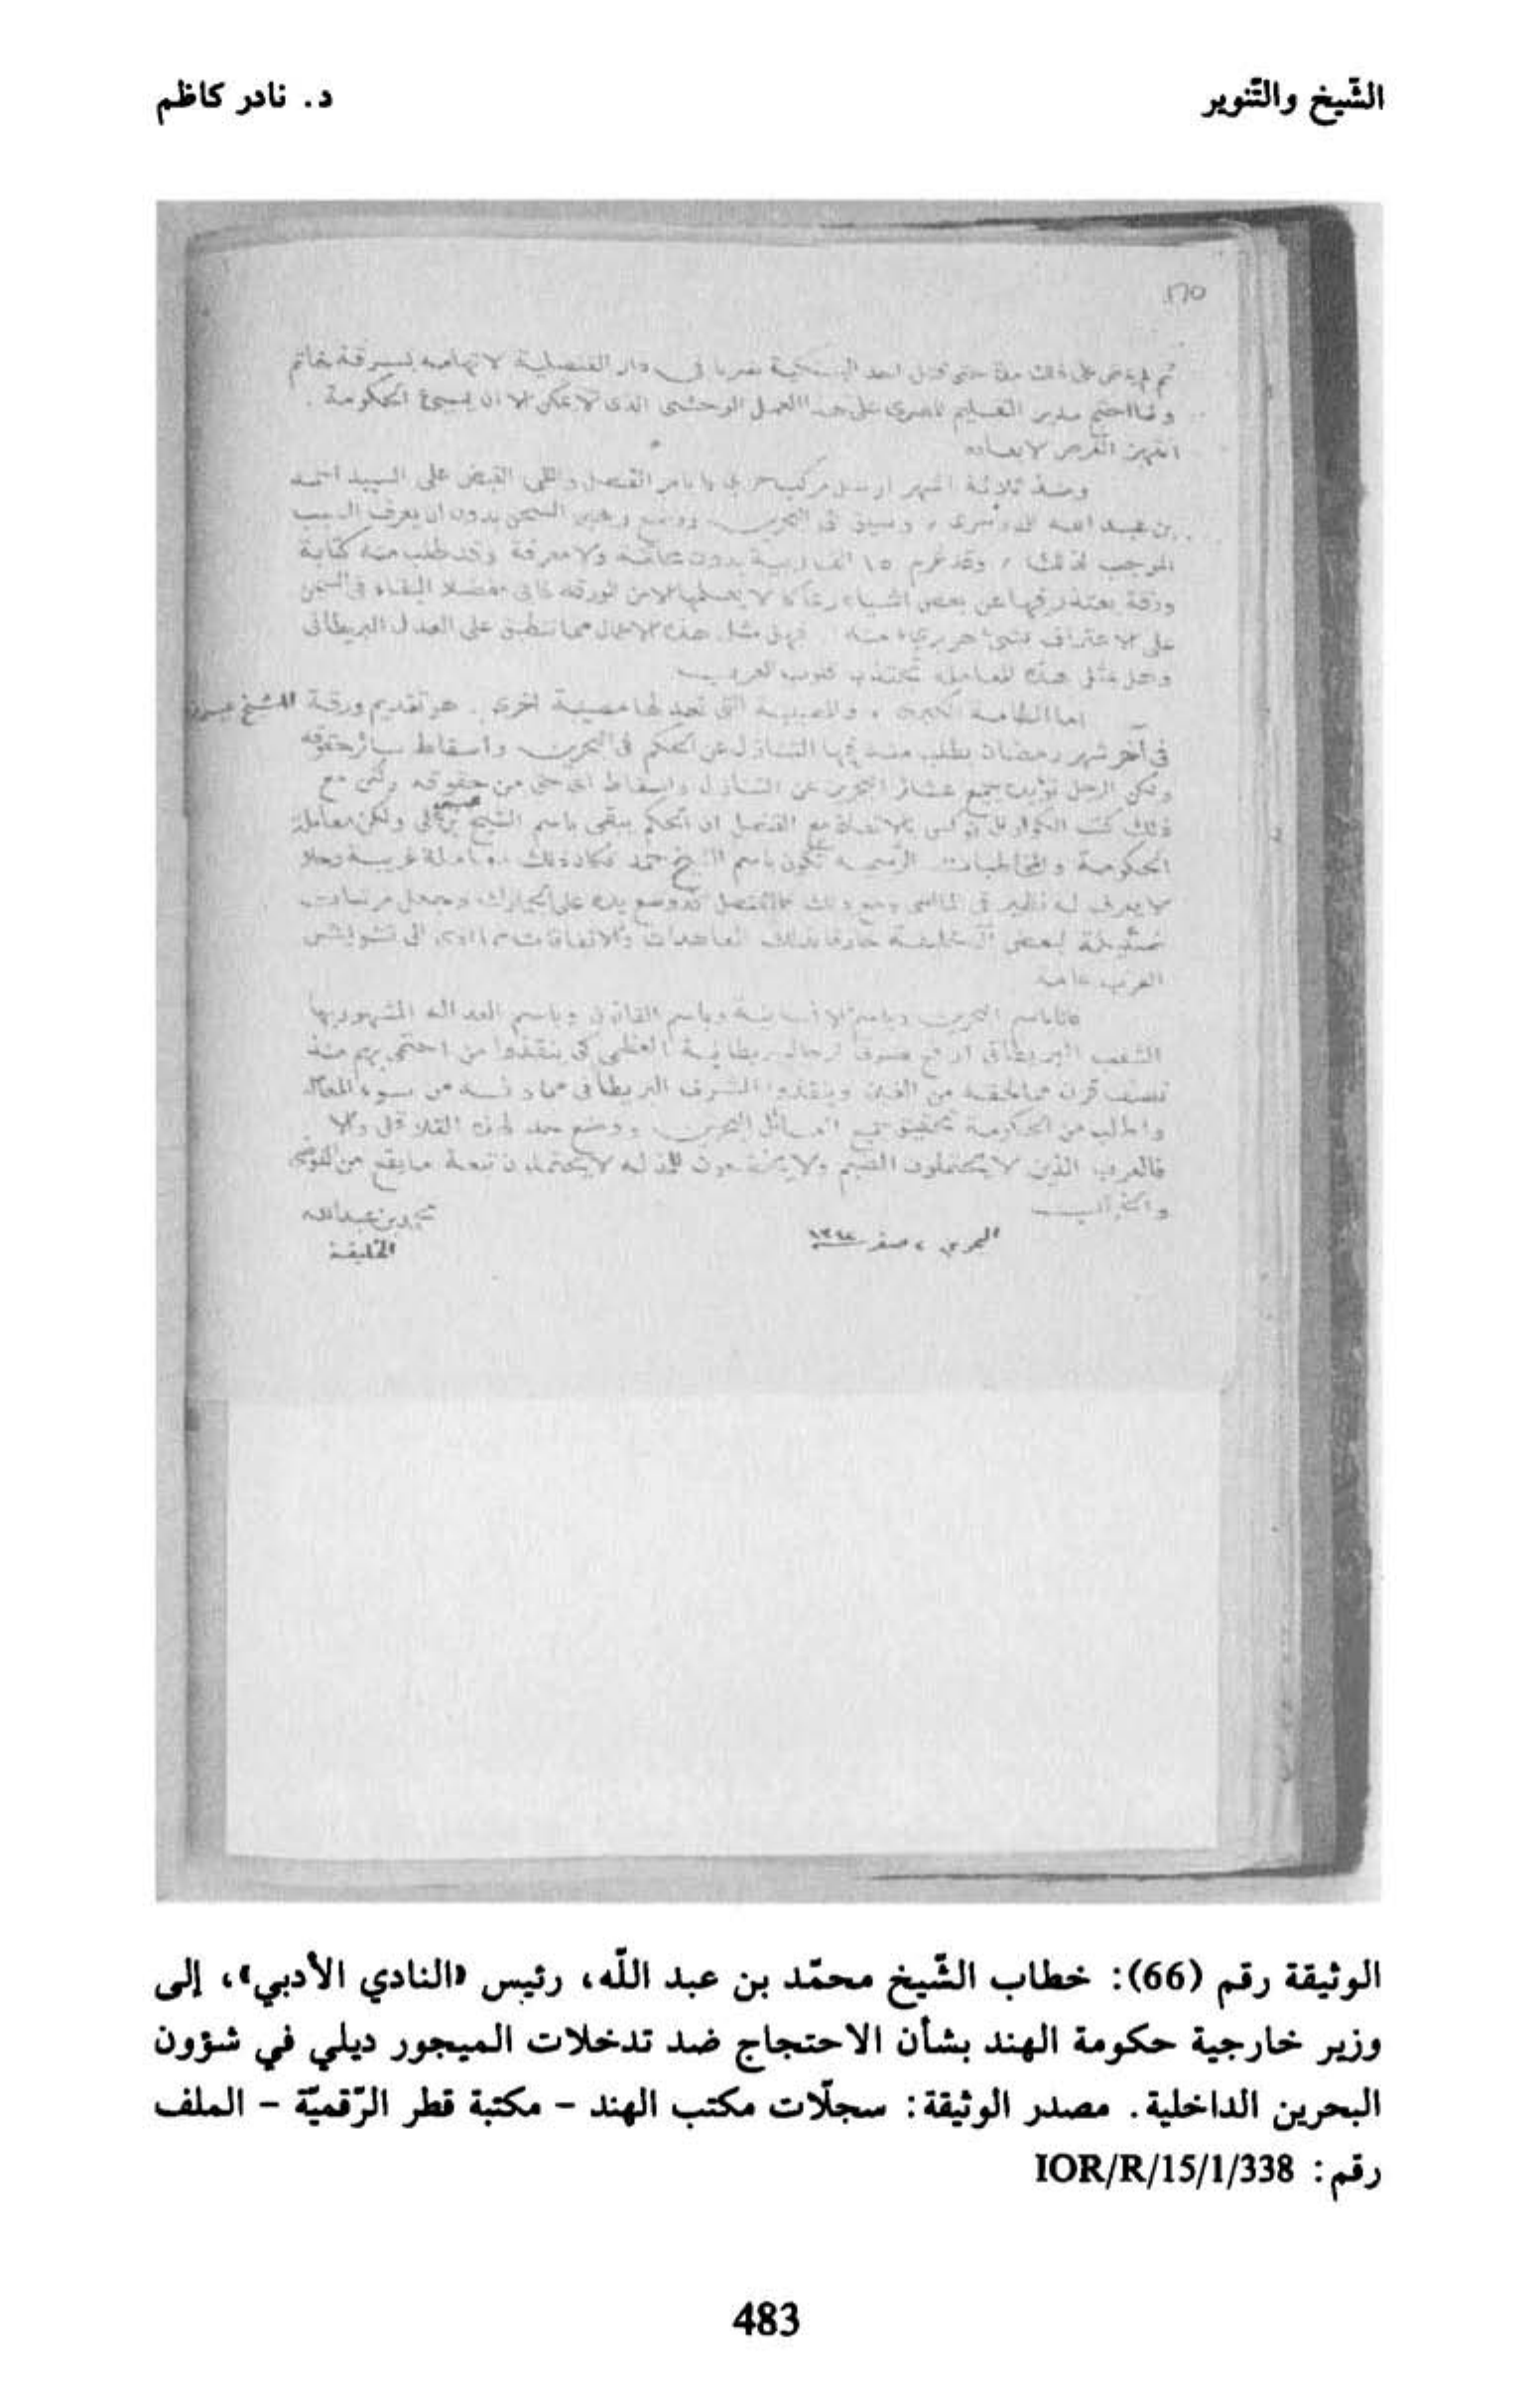 الشّيخ والتّنوير
د. نادر كاظم
170
ثم لم يمض على ذلك مدة حتى قتل احد ضربا في دار القنصلية لاتهامه بسرقة خاتم
ولما احتج مدير التعليم المصري على هذا العمل الوحشي الذي لا يمكن الا ان يسئ الحكومة .
انتهز الفرص لابعاده
ومنذ ثلاثة اشهر ارسل مركب حربي بأمر القنصل والقى القبض على السيد احمد
بن عبد الله وسيق الى البحرين ووضع رهين السجن بدون ان يعرف السبب
الموجب لذلك ، وقد غرم ١٥ الف ربية بدون محاكمة ولا معرفة وقد طلب منه كتابة
ورقة يعتذر فيها عن بعض اشياء لا يعلمها الا من الورقة فأبى مفضلا البقاء في السجن
على الاعتراف بشئ هو برئ منه فهل مثل هذه الاعمال مما تنطبق على العدل البريطاني
وهل مثل هذه المعاملة تجتذب قلوب العرب
اما الطامة الكبرى ، والمصيبة التي تعد لها مصيبة اخرى . هو تقديم ورقة للشيخ عيسى
في آخر شهر رمضان يطلب منه فيها التنازل عن الحكم في البحرين واسقاط سائر حقوقه
ولكن الرجل جميع عشائر البحرين عن التنازل واسقاط اي حق من حقوقه ولكن مع
ذلك كتب نوكس بالاتفاق مع القنصل ان الحكم يبقى باسم الشيخ عيسى بن علي ولكن معاملة
الحكومة والمخاطبات الرسمية تكون باسم الشيخ حمد فكان ذلك معاملة غريبة
لا يعرف له نظير في الماضي ومع ذلك القنصل قد وضع يده على الجمارك وجعل مرتبات
ضئيلة لبعض آل خليفة خارقا بذلك المعاهدات والاتفاقات مما ادى الى تشويش
العرب عامة
فانا باسم البحرين وباسم الانسانية وباسم القانون وباسم العدالة المشهور بها
الشعب البريطاني ارفع صوتي لرجال بريطانية العظمى كي ينقذوا من احتمى بهم منذ
نصف قرن مما لحقه من الغبن وينقذوا الشرف البريطاني مما دنسه من سوء
واطلب من الحكومة تحقيق جميع المسائل البحرين ووضع حد لهذه القلاقل والا
فالعرب الذين لا يحتملون الضيم ولا للمذلة لا يحتملون تبعة ما يقع من الفوضى
محمد بن عبدالله
الخليفة
البحرين ، صفر
الوثيقة رقم (66): خطاب الشّيخ محمّد بن عبد اللّه، رئيس «النادي الأدبي»، إلى
وزير خارجية حكومة الهند بشأن الاحتجاج ضد تدخلات الميجور ديلي في شؤون
البحرين الداخلية. مصدر الوثيقة: سجلّات مكتب الهند - مكتبة قطر الرّقميّة - الملف
رقم: IOR/R/15/1/338
483